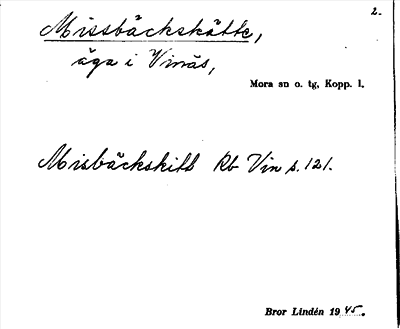 2.
Missbäckskätte,
äga i Vinäs,
Mora sn o. tg, Kopp. l.
Misbäckskitt Rb Vin s. 121.
Bror Lindén 1945.